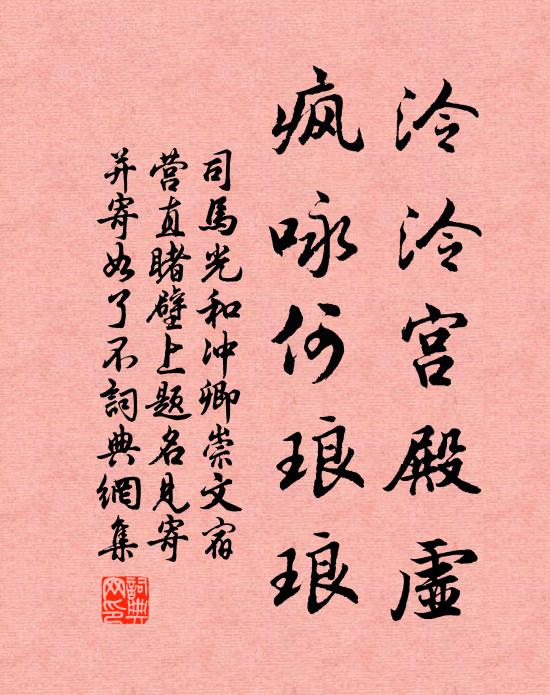 泠泠宫殿虚
疯咏何琅琅
司馬光和冲卿崇文宿
营直睹壁上题名见寄
并寄如了不詞典網集
詞典網印